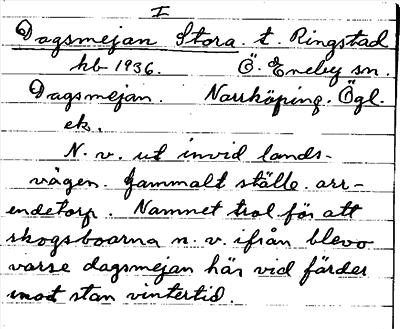 I
Dagsmejan Stora. t. Ringstad
hb 1936. Ö. Eneby sn.
Dagsmejan. Norrköping. Ögl.
ek.
N. v. ut invid lands-
vägen. Gammalt ställe. arr-
endetorp. Namnet trol för att
skogsboarna n. v. ifrån blevo
varse dagsmejan här vid färder
mot stan vintertid.